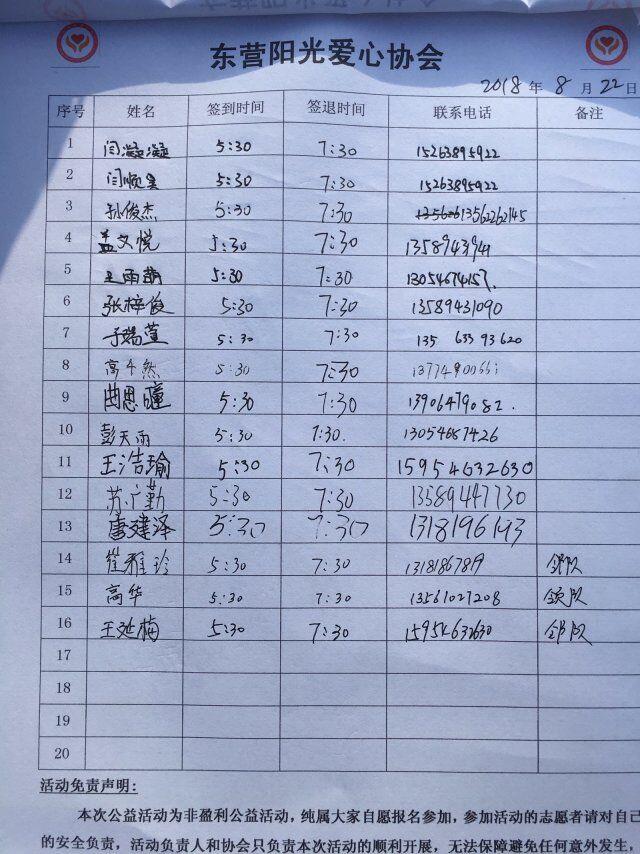 东营阳光爱心协会
2018 年 8 月 22 日
序号 姓名 签到时间 签退时间 联系电话 备注
1 闫凝凝 5:30 7:30 15263895922
2 闫顺 5:30 7:30 15263895922
3 孙俊杰 5:30 7:30 13562262145
4 孟文悦 5:30 7:30
5 王雨萌 5:30 7:30 13054674157
6 张梓俊 5:30 7:30 13589431090
7 于瑞萱 5:30 7:30 135 633 93620
8 高 然 5:30 7:30
9 曲思瞳 5:30 7:30 13906479082.
10 彭天雨 5:30 7:30. 13054687426
11 王浩瑜 5:30 7:30 15954632630
12 苏广勤 5:30 7:30 13589447730
13 唐建泽 5:30 7:30
14 崔雅玲 5:30 7:30 领队
15 高华 5:30 7:30 13561027208 领队
16 王延梅 5:30 7:30 15954632630 领队
17
18
19
20
活动免责声明:
本次公益活动为非盈利公益活动，纯属大家自愿报名参加，参加活动的志愿者请对自己
的安全负责，活动负责人和协会只负责本次活动的顺利开展，无法保障避免任何意外发生，